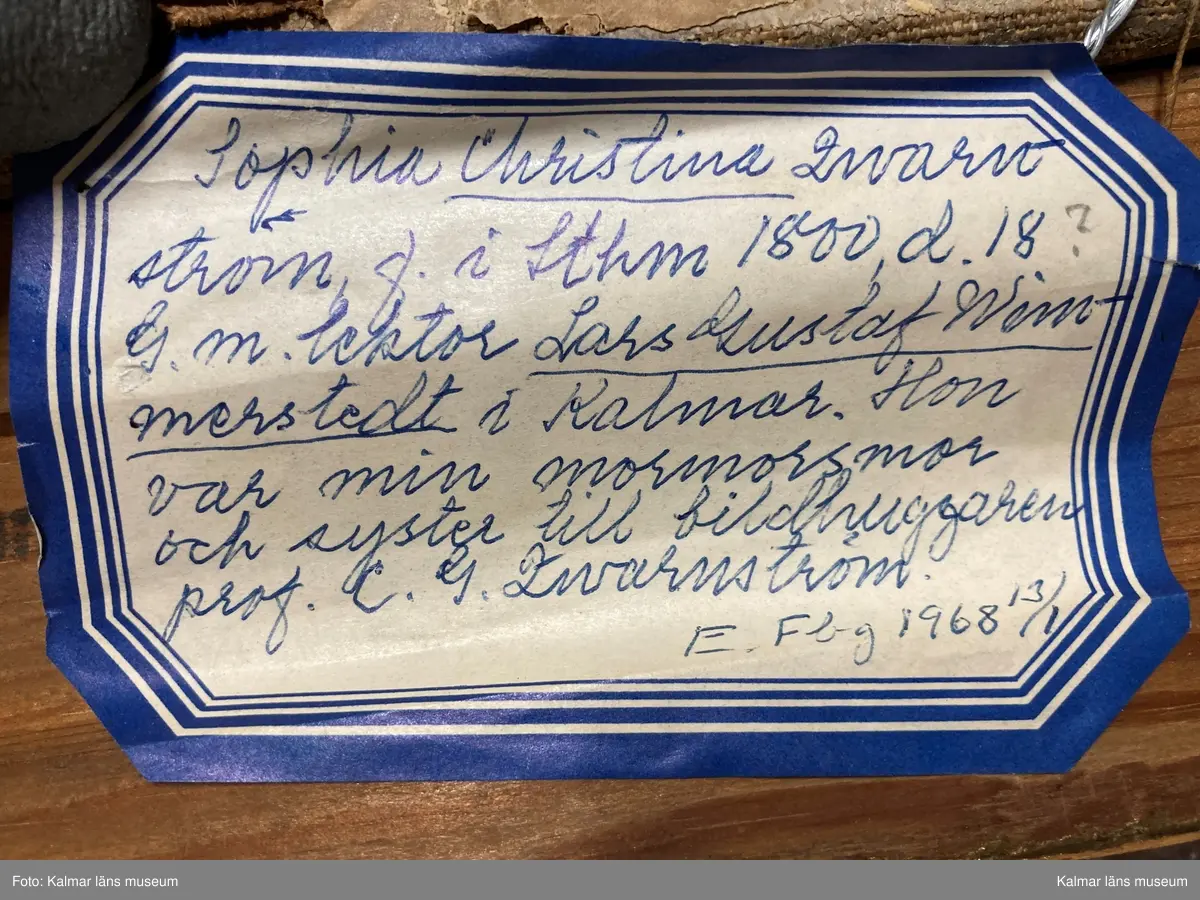 Sophia Christina Qvarn
ström, f. i Sthm 1800, d. 18 ?
G. m. lektor Lars Gustaf Wim-
merstedt i Kalmar. Hon
var min mormorsmor
och syster till bildhuggaren
prof. C. G. Qvarnström.
E. Fbg 1968 13/1
Foto: Kalmar läns museum
Kalmar läns museum